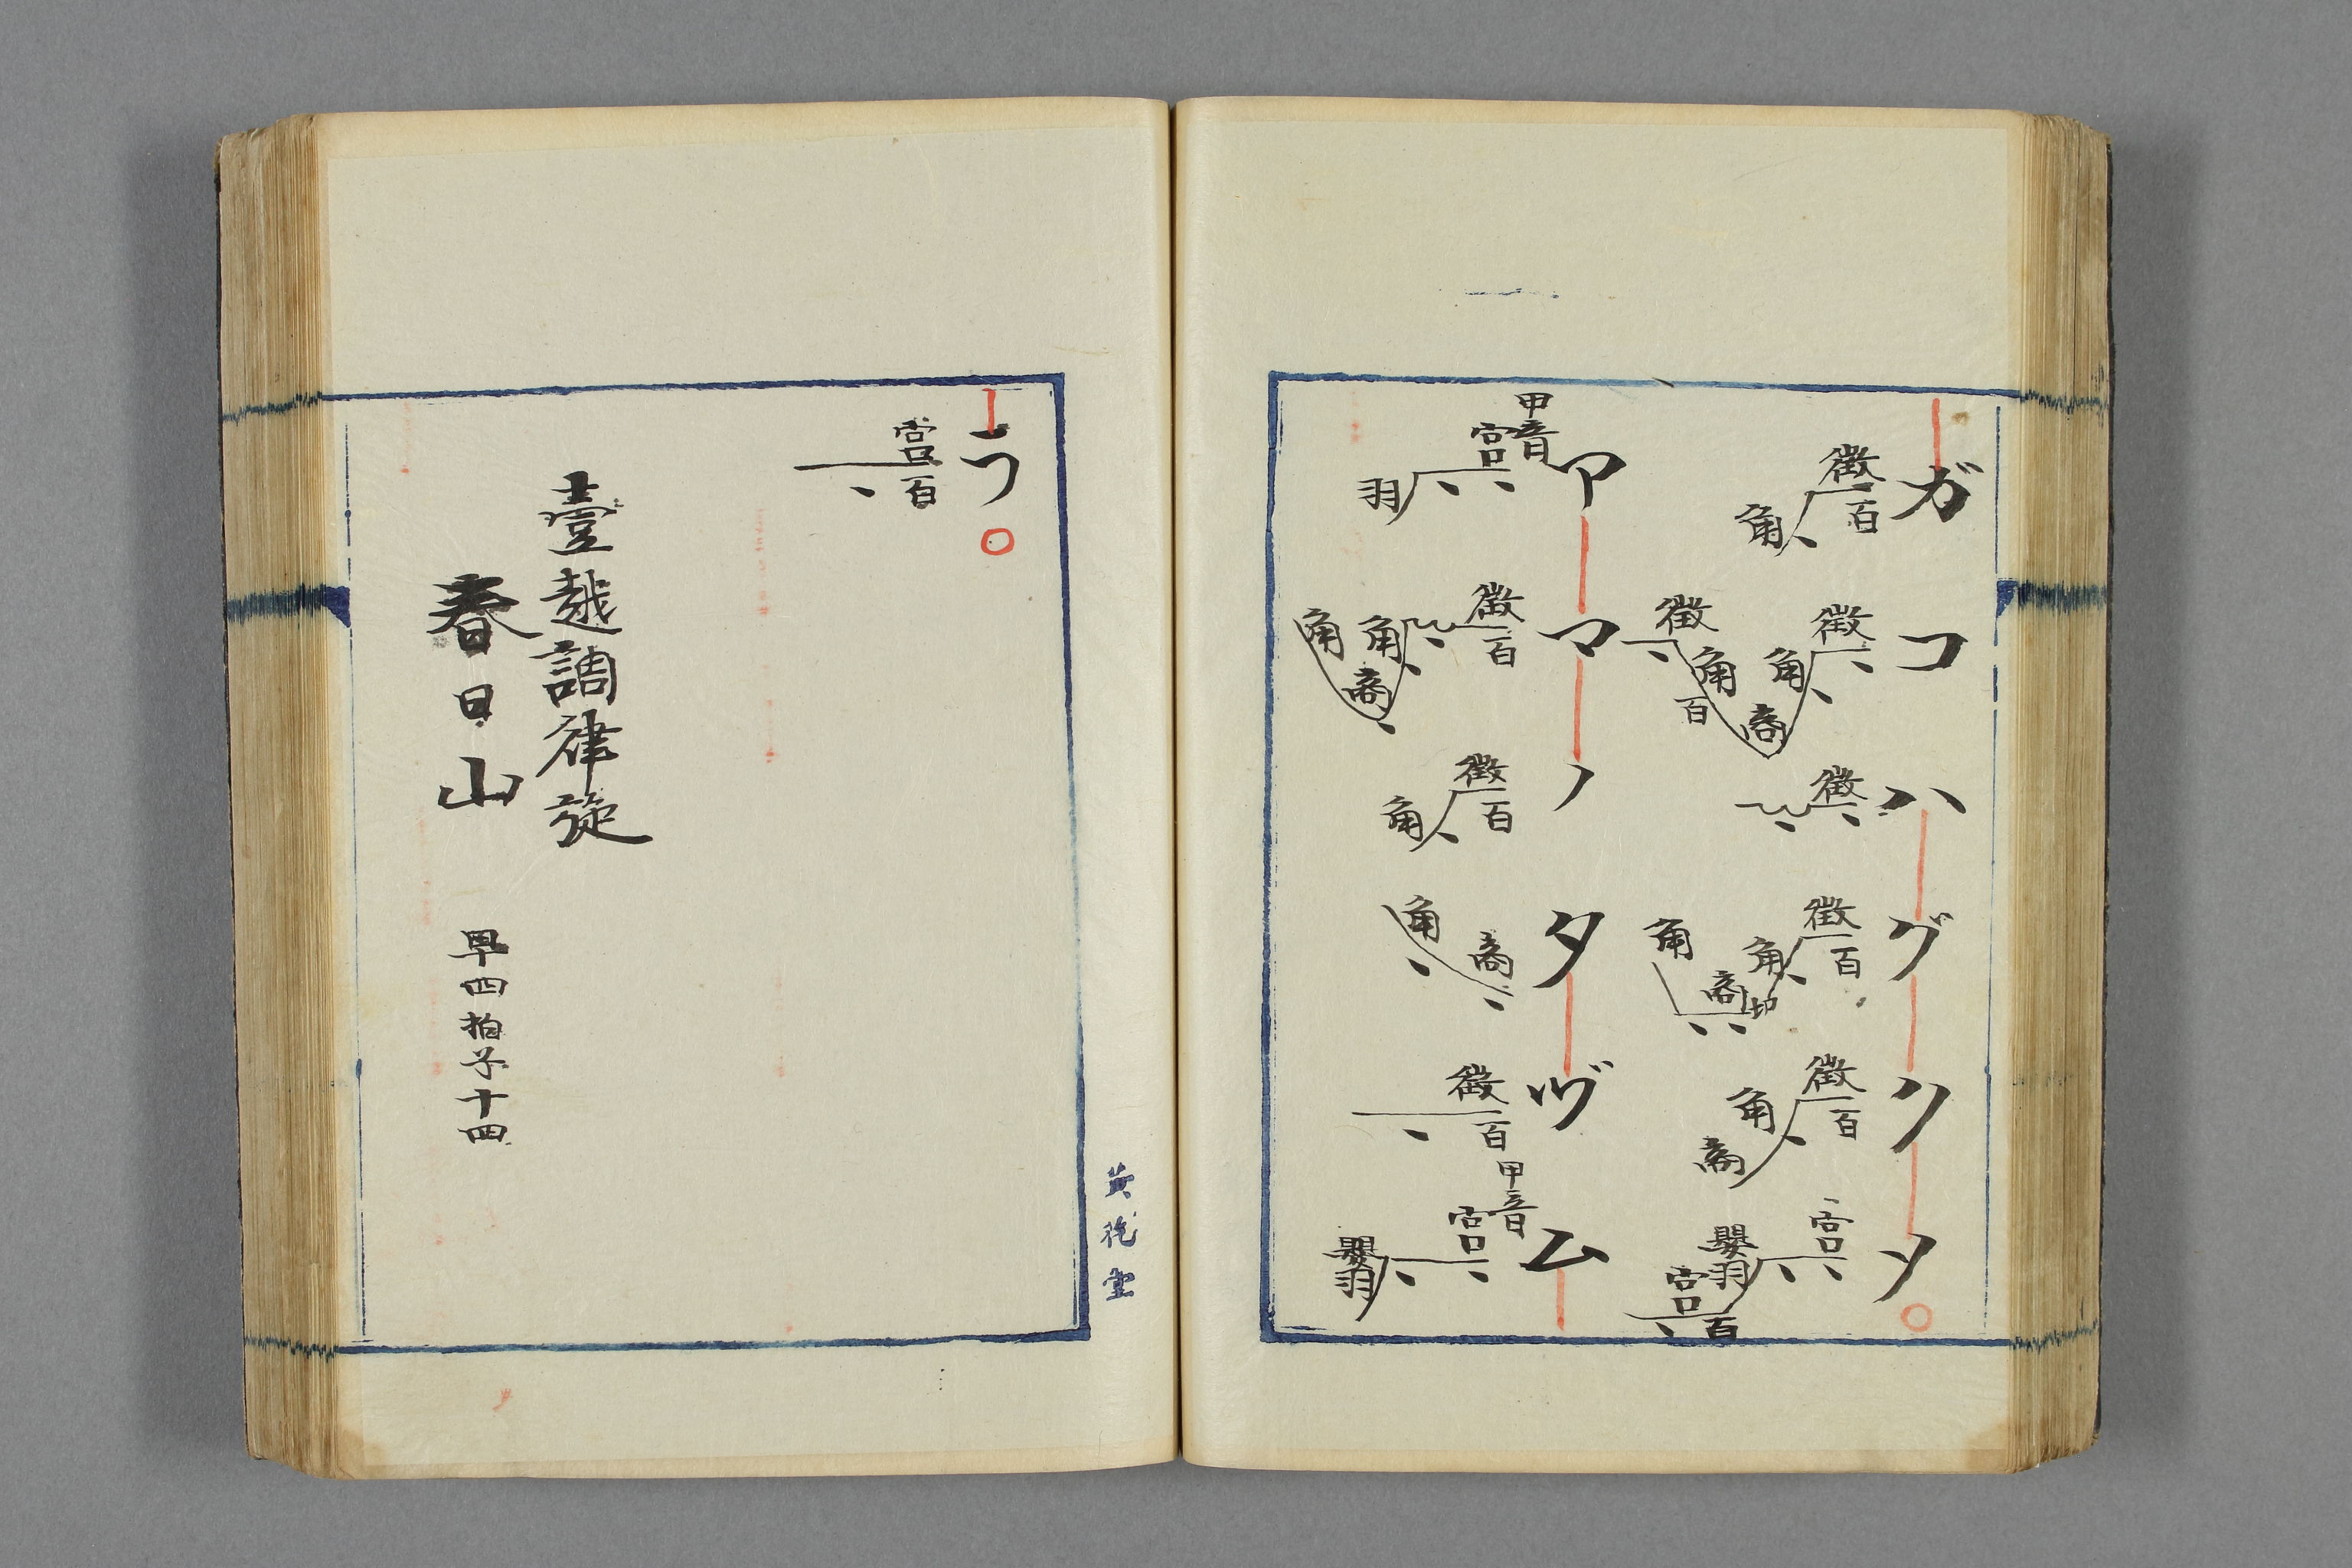 ガコハグクメ
徴百角
徴角商角百徴
徴
徴百角商角
徴百角商
宮嬰羽宮百
アマノタヅム
甲音宮羽
徴百角商角
徴百角
商角
徴百
甲音宮嬰羽
ラ
宮百
壹越調律旋
春日山
早四拍子十四